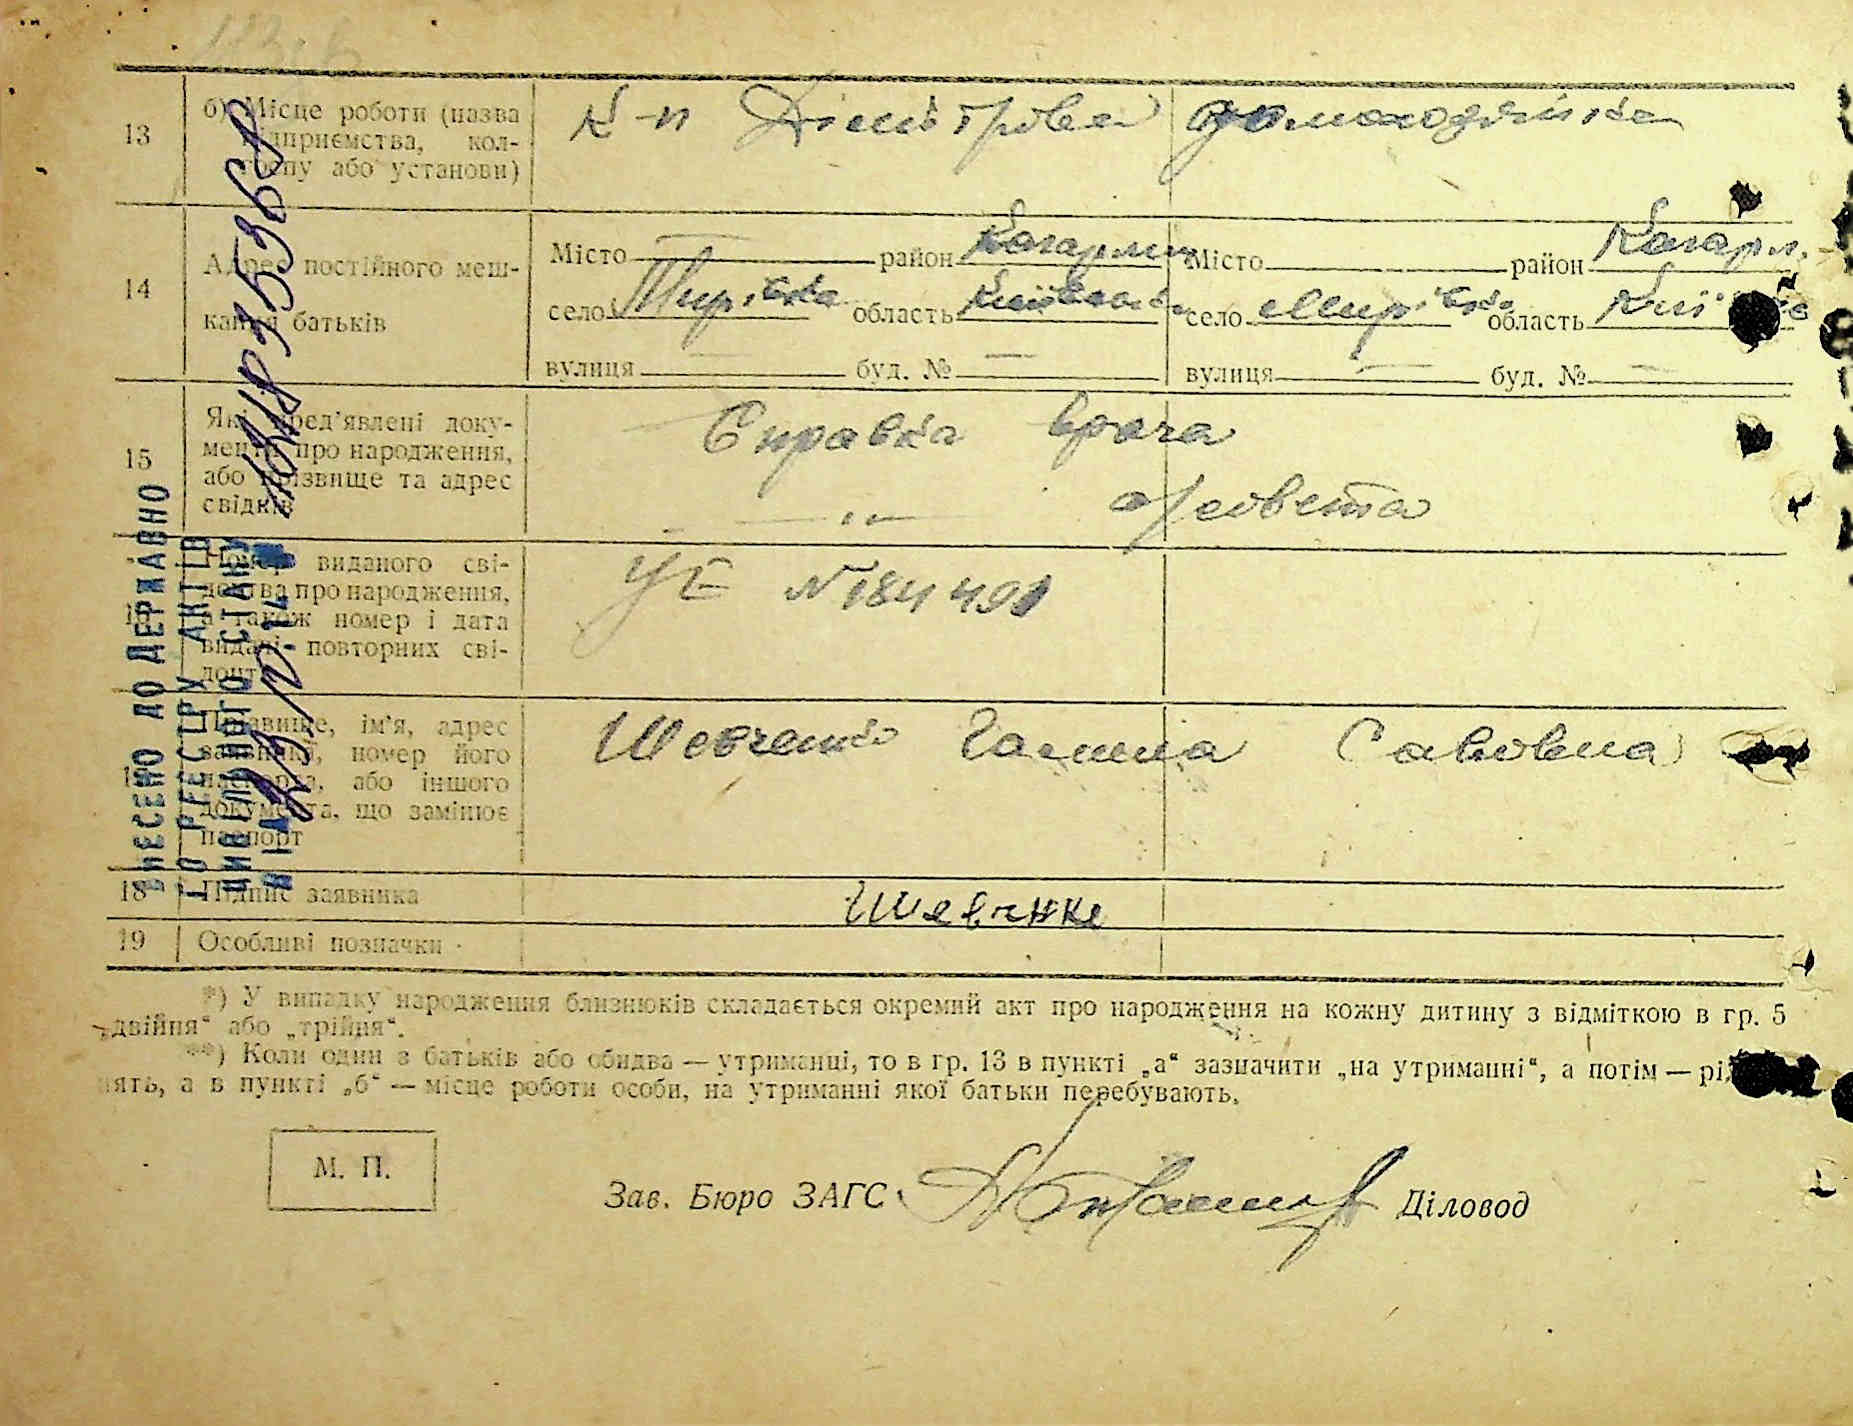 13
б) Місце роботи (назва
підприємства, кол-
госпу або установи)
к-п Дімітрова
домохозяйка
14
Адрес постійного меш-
кання батьків
Місто район Кагарлик
село Мирівка область Київська
вулиця — буд. № —
Місто район Кагарл.
село Мирівка область Киї
вулиця — буд. № —
15
Які пред'явлені доку-
менти про народження,
або прізвище та адрес
свідків
Справка врача
— „ — с/совета
16
Номер виданого сві-
доцтва про народження,
а також номер і дата
видачі повторних сві-
доцтв
УЕ №
17
Прізвище, ім'я, адрес
заявника, номер його
паспорта, або іншого
документа, що замінює
паспорт
Шевченко Галина Савовна
18
Підпис заявника
Шевчнке
19
Особливі позначки
ВНЕСЕНО ДО ДЕРЖАВНО
ГО РЕЄСТРУ АКТІВ
ЦИВІЛЬНОГО СТАНУ
*) У випадку народження близнюків складається окремий акт про народження на кожну дитину з відміткою в гр. 5
„двійня“ або „трійня“.
**) Коли один з батьків або обидва — утриманці, то в гр. 13 в пункті „а“ зазначити „на утриманні“, а потім — рід
нять, а в пункті „б“ — місце роботи особи, на утриманні якої батьки перебувають.
М. П.
Зав. Бюро ЗАГС
Діловод